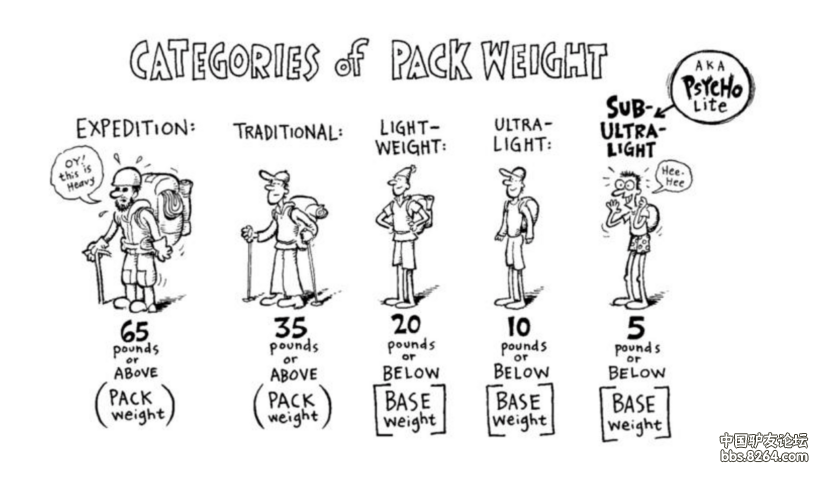 CATEGORIES of PACK WEIGHT
AKA
PSYCHO
Lite
EXPEDITION:
OY!
this is
Heavy
65
pounds
or
ABOVE
(PACK
weight)
TRADITIONAL:
35
pounds
or
ABOVE
(PACK
weight)
LIGHT-
WEIGHT:
20
pounds
or
BELOW
[BASE
weight]
ULTRA-
LIGHT:
10
pounds
or
BELOW
[BASE
weight]
SUB-
ULTRA-
LIGHT
Hee-
Hee
5
pounds
or
BELOW
[BASE
weight]
中国驴友论坛
bbs.8264.com